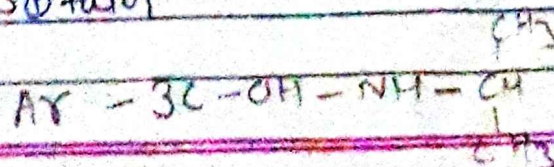 CH3
Ar - 3C - OH - NH - CH